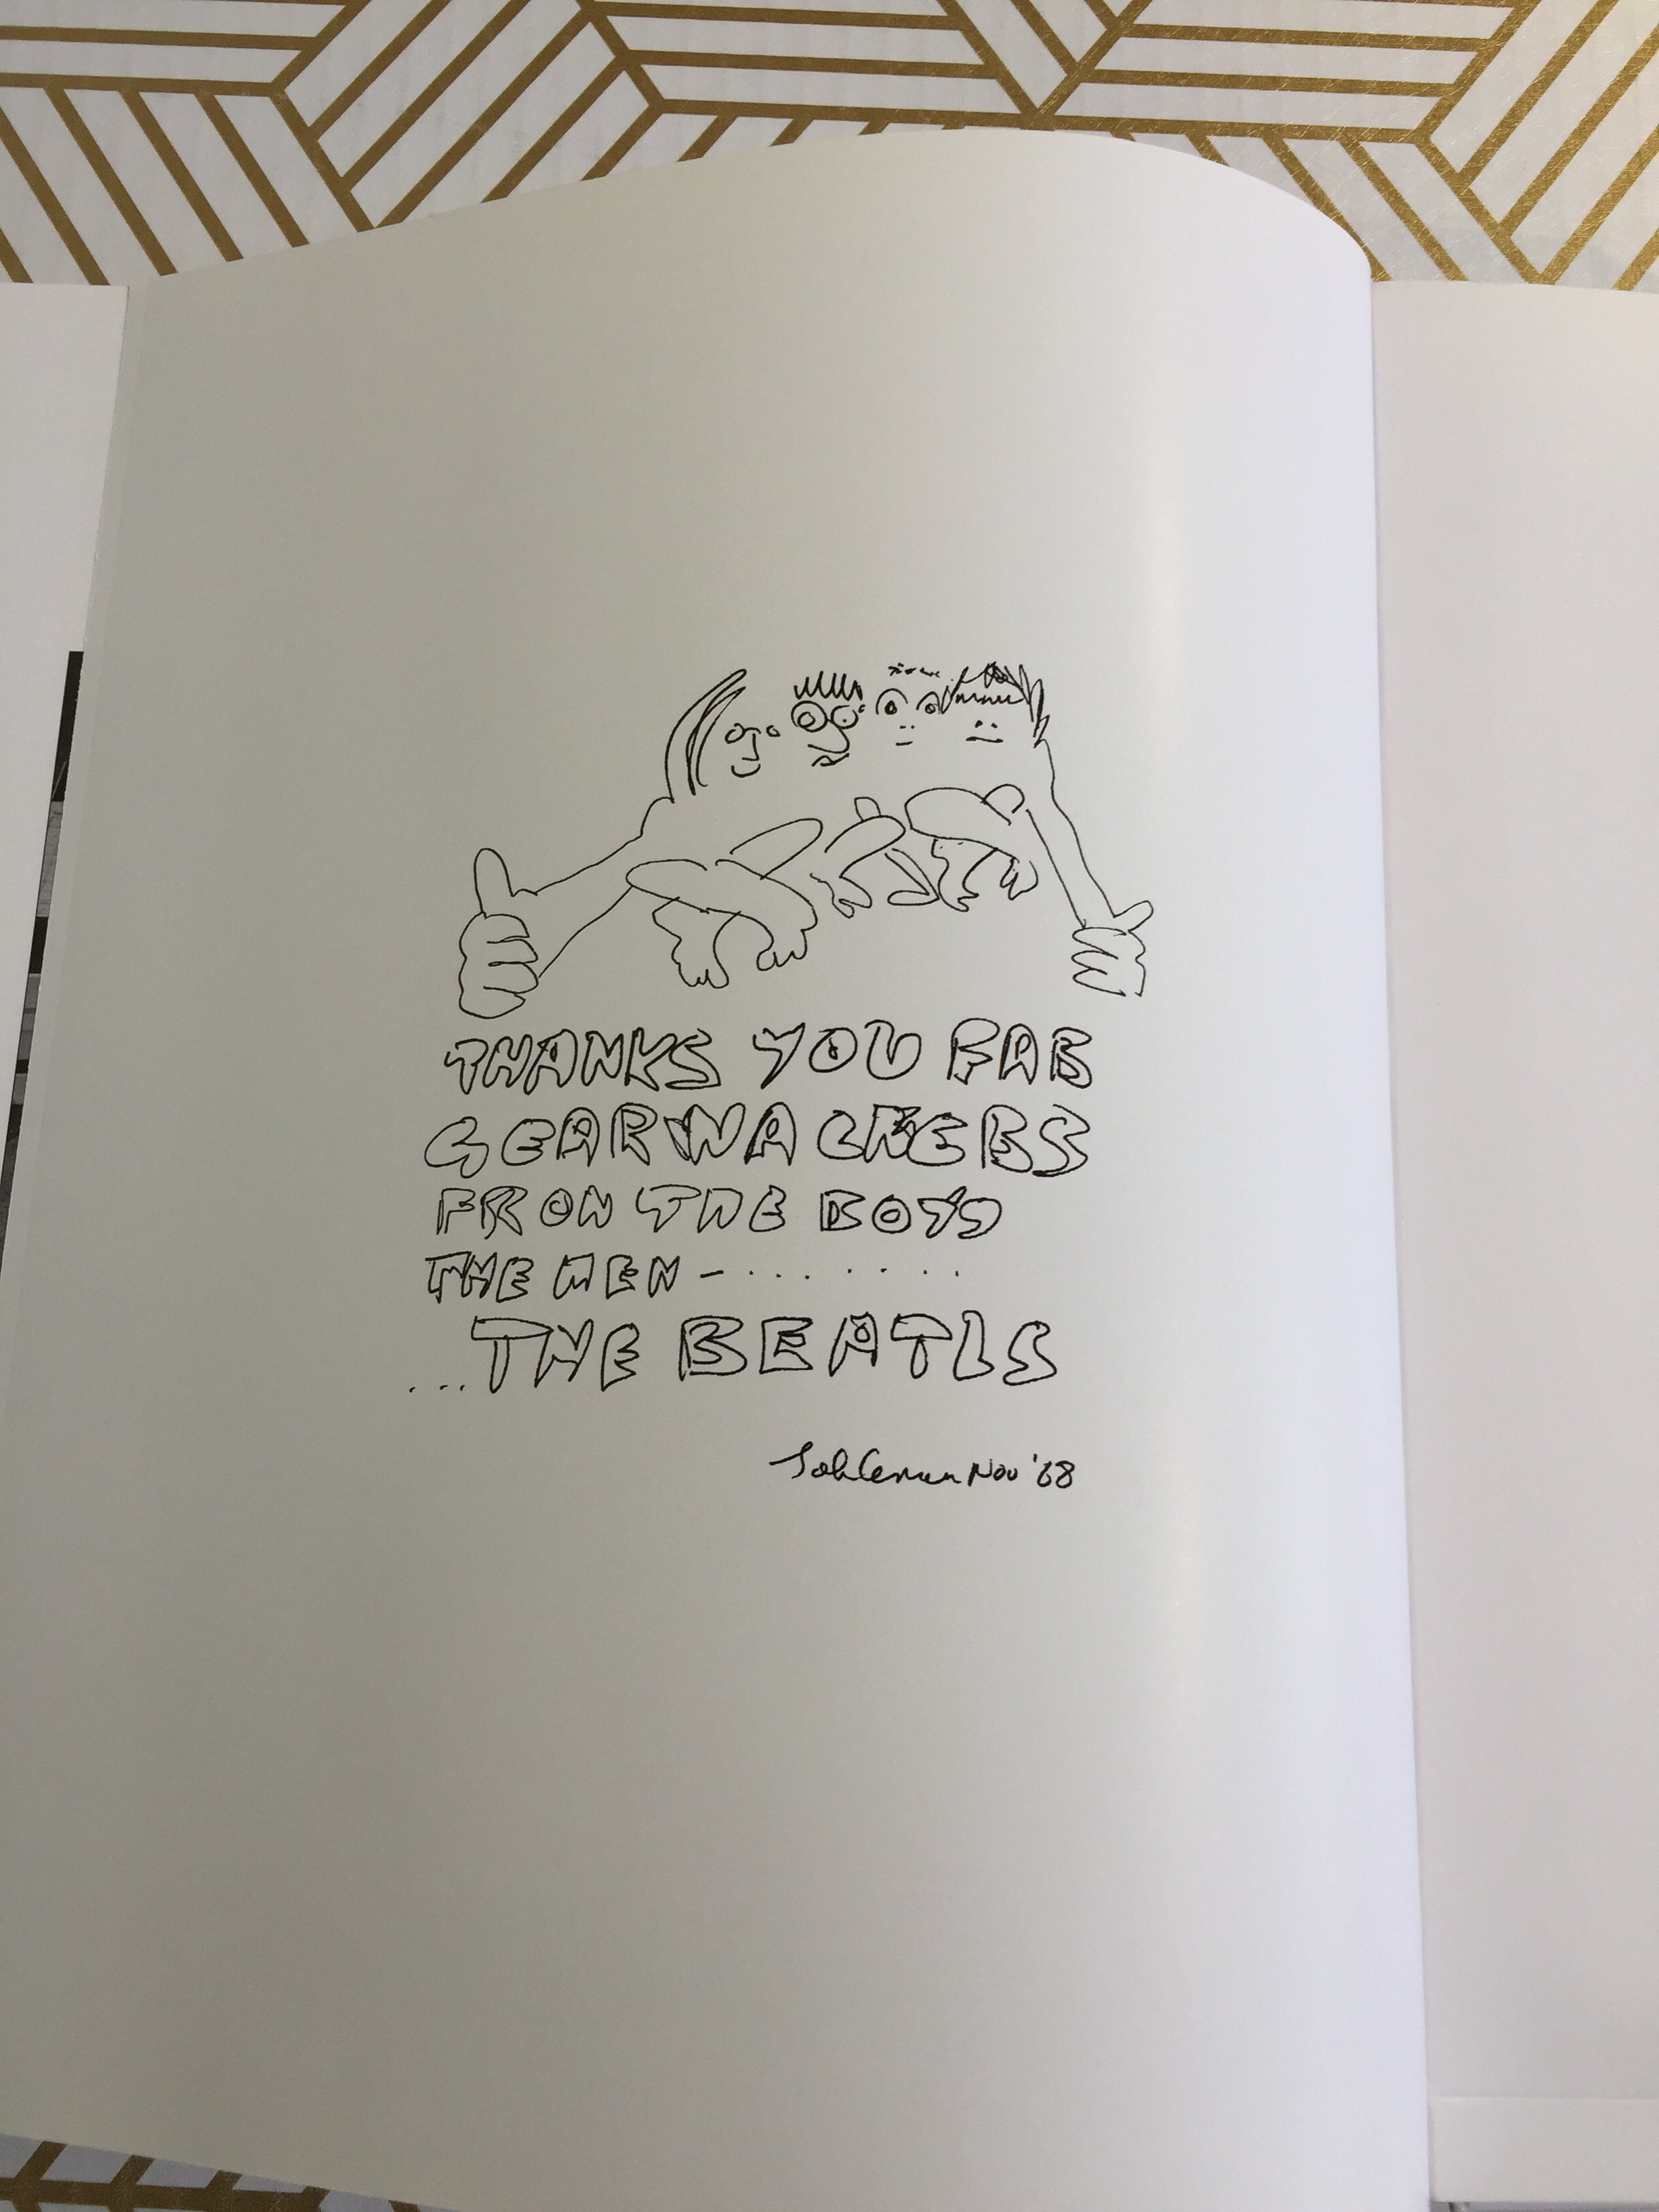 THANKS YOU FAB
GEARWACKEBS
FROM THE BOYS
THE MEN - . . . . . . .
...THE BEATLS
John Lennon Nov '68